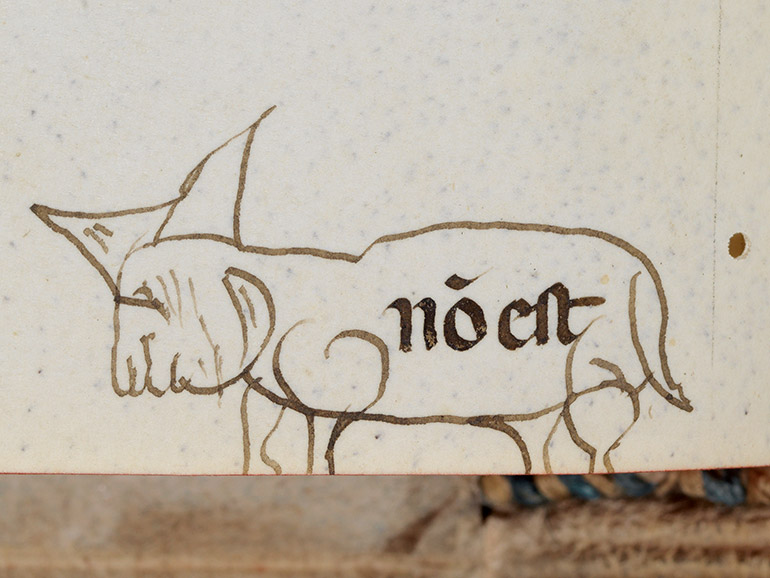 nō est